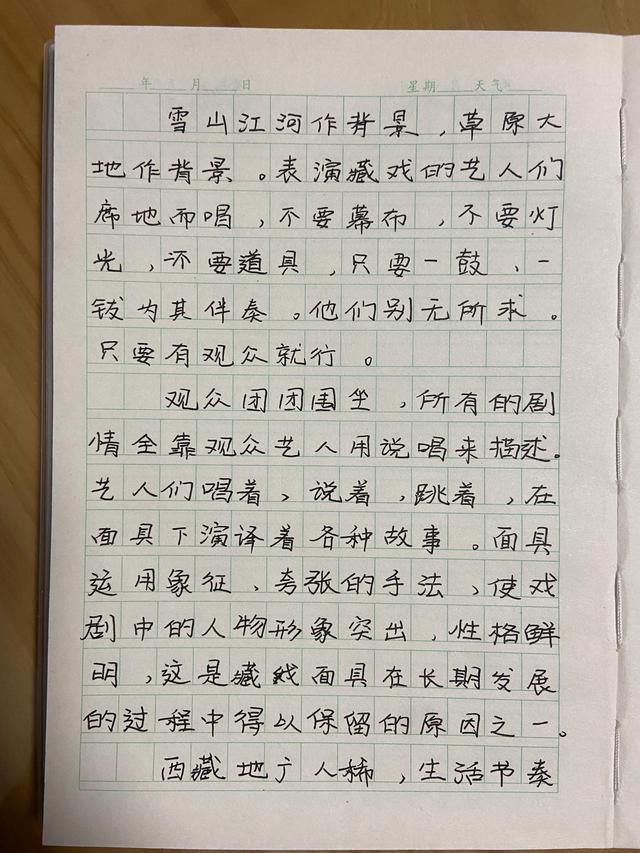 年 月 日 星期 天气
雪山江河作背景，草原大
地作背景。表演藏戏的艺人们
席地而唱，不要幕布，不要灯
光，不要道具，只要一鼓、一
钹为其伴奏。他们别无所求。
只要有观众就行。
观众团团围坐，所有的剧
情全靠观众艺人用说唱来描述。
艺人们唱着，说着，跳着，在
面具下演译着各种故事。面具
运用象征、夸张的手法，使戏
剧中的人物形象突出，性格鲜
明，这是藏戏面具在长期发展
的过程中得以保留的原因之一。
西藏地广人稀，生活节奏